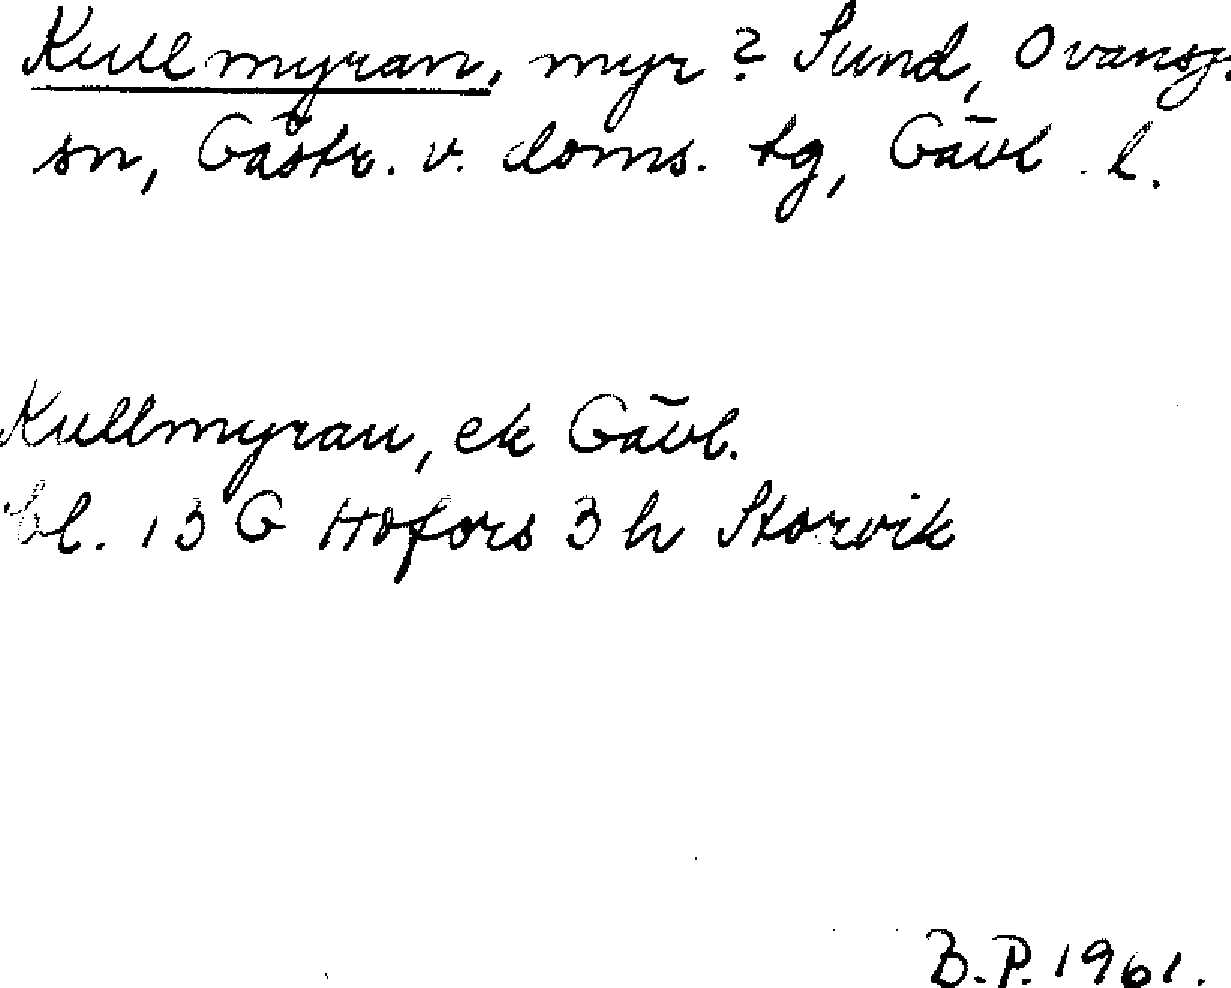 Kullmyran, myr? Sund, Ovansj.
sn, Gästr. v. doms. tg, Gävl. l.
Kullmyran, ek Gävl.
bl. 13 G Hofors 3 h Storvik
B.P. 1961.